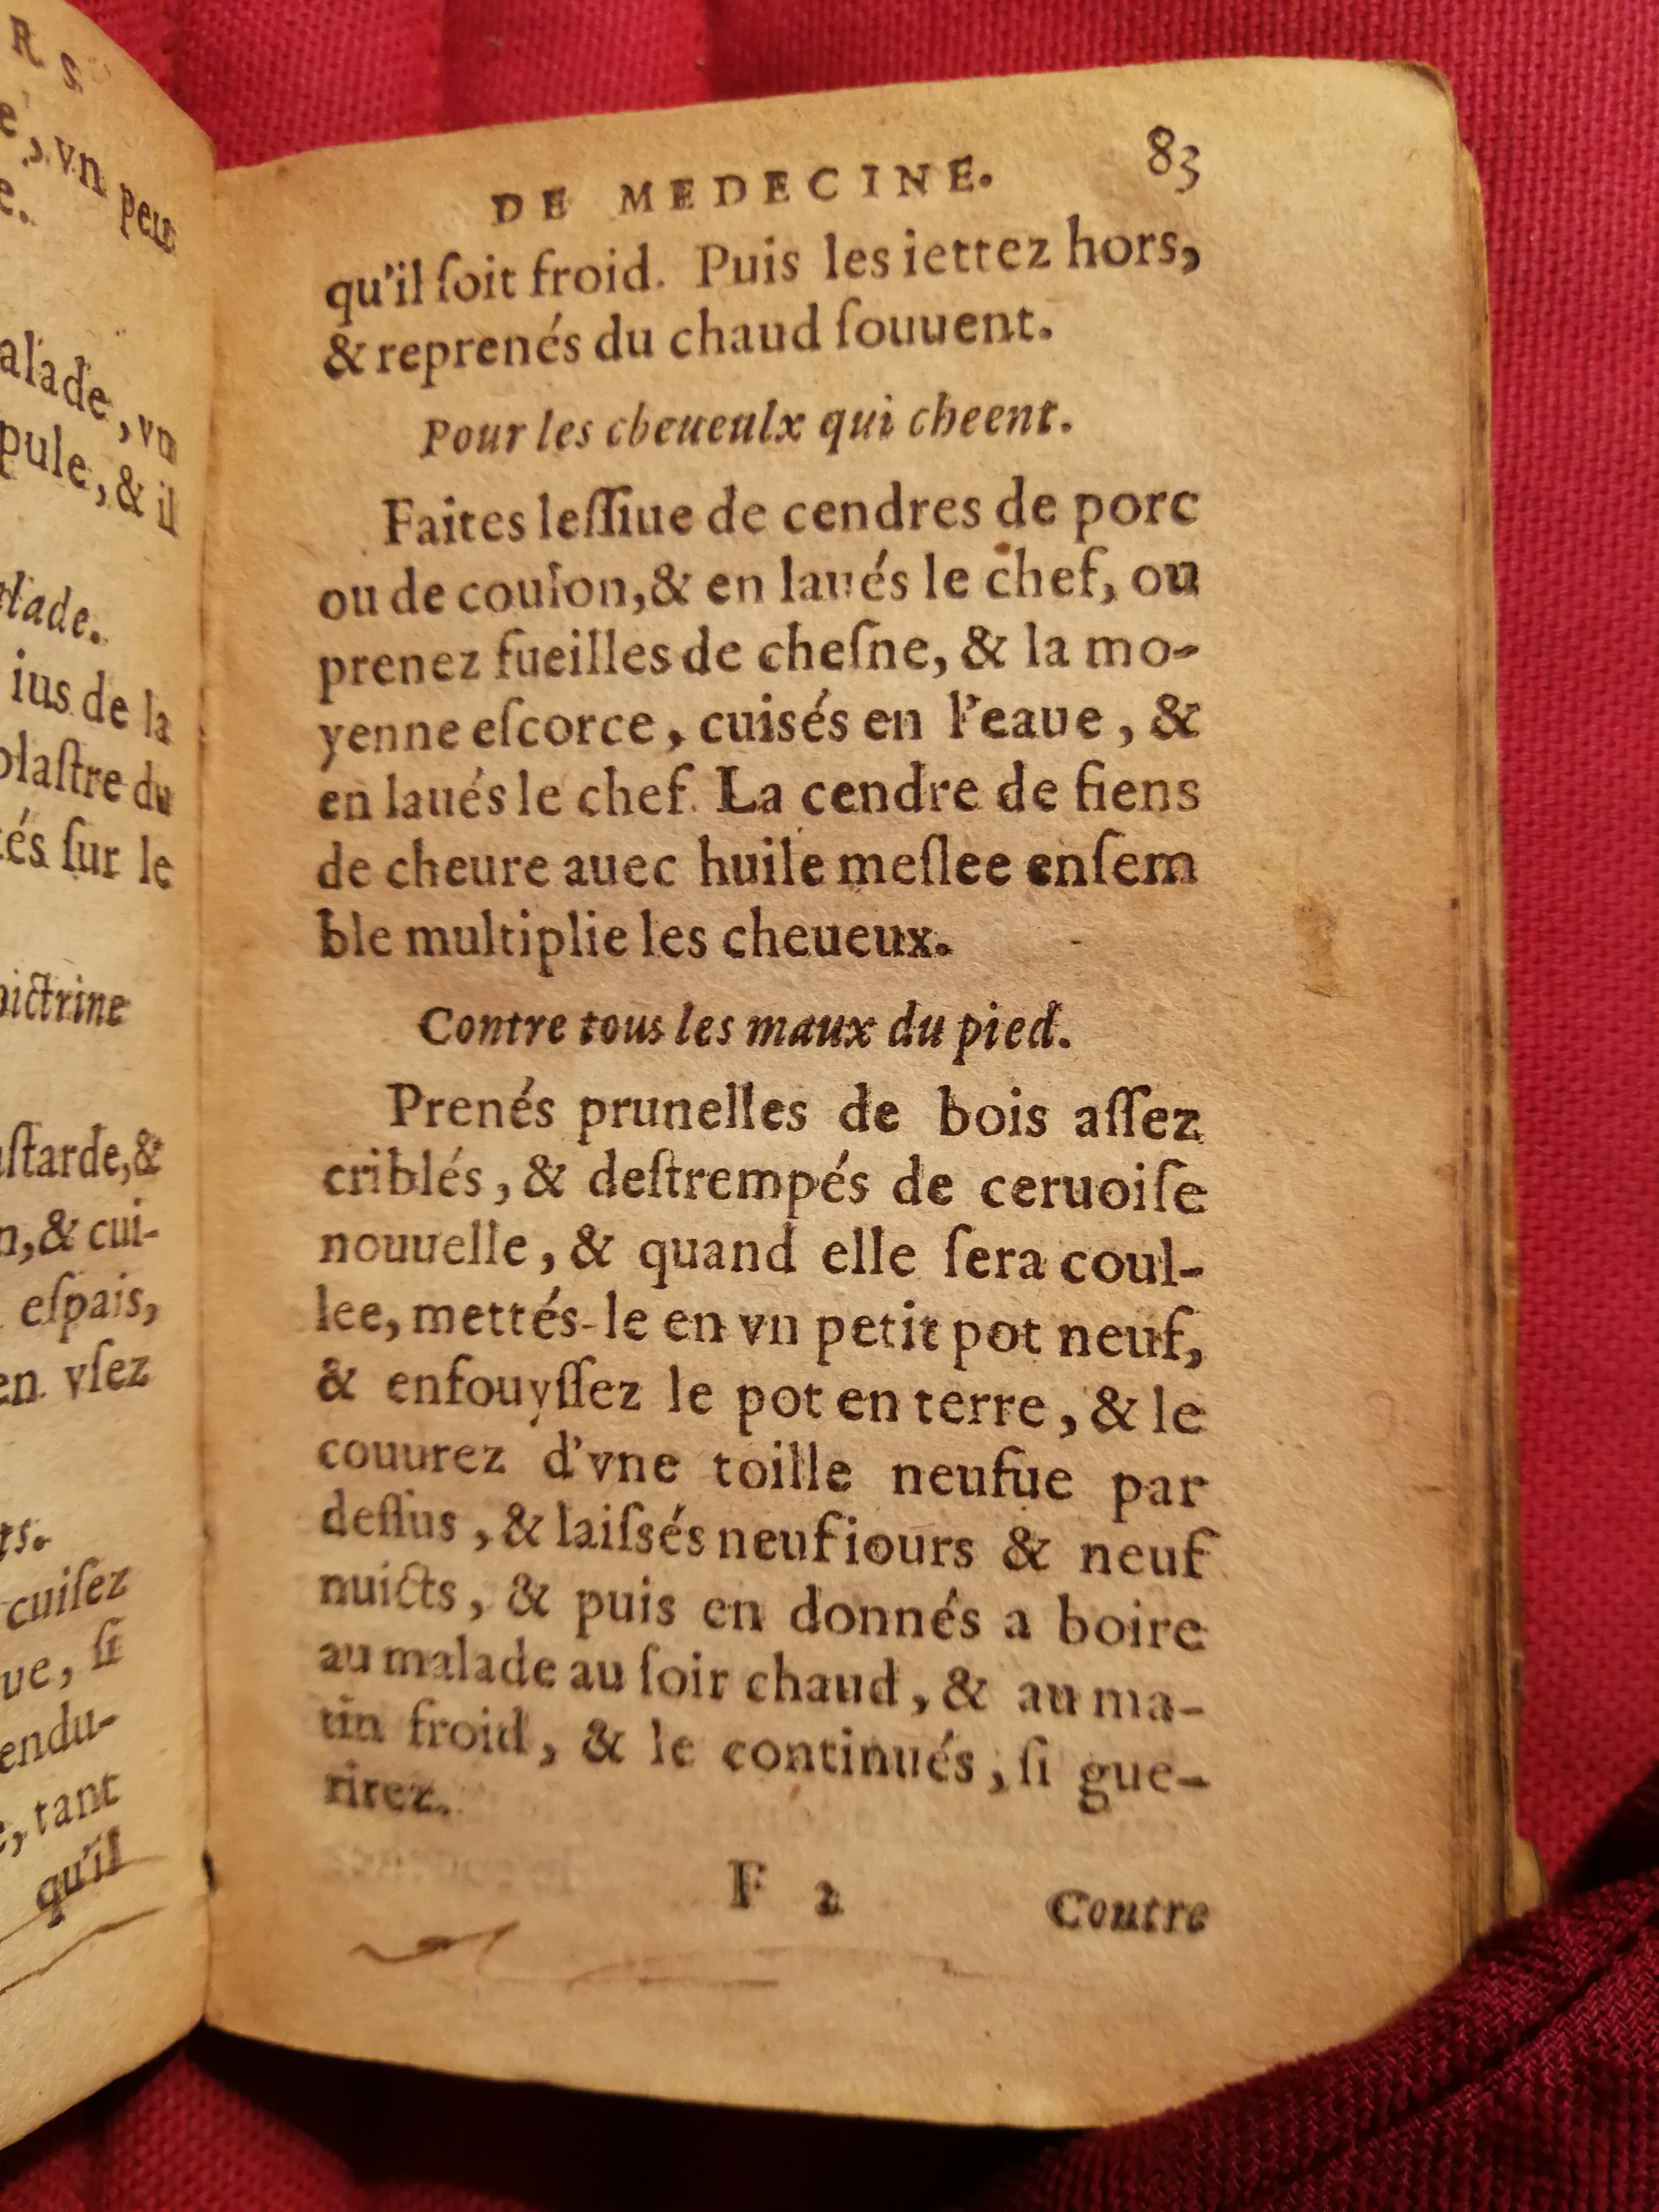 R S
e, vn peu
e.
alade, vn
pule, & il
lade.
ius de la
plaſtre du
tés ſur le
oictrine
uſtarde, &
n, & cui-
eſpais,
en vſez
rs.
cuiſez
ue, ſi
endu-
e, tant
qu'il
DE MEDECINE. 83
qu'il ſoit froid. Puis les iettez hors,
& reprenés du chaud ſouuent.
Pour les cheueulx qui cheent.
Faites leſſiue de cendres de porc
ou de coulon, & en laués le chef, ou
prenez fueilles de cheſne, & la mo-
yenne eſcorce, cuisés en l'eaue, &
en laués le chef. La cendre de fiens
de cheure auec huile meſlee enſem
ble multiplie les cheueux.
Contre tous les maux du pied.
Prenés prunelles de bois aſſez
criblés, & deſtrempés de ceruoiſe
nouuelle, & quand elle ſera coul-
lee, mettés-le en vn petit pot neuf,
& enfouyſſez le pot en terre, & le
couurez d'vne toille neufue par
deſſus, & laiſsés neuf iours & neuf
nuicts, & puis en donnés a boire
au malade au ſoir chaud, & au ma-
tin froid, & le continués, ſi gue-
rirez.
F 2 Contre